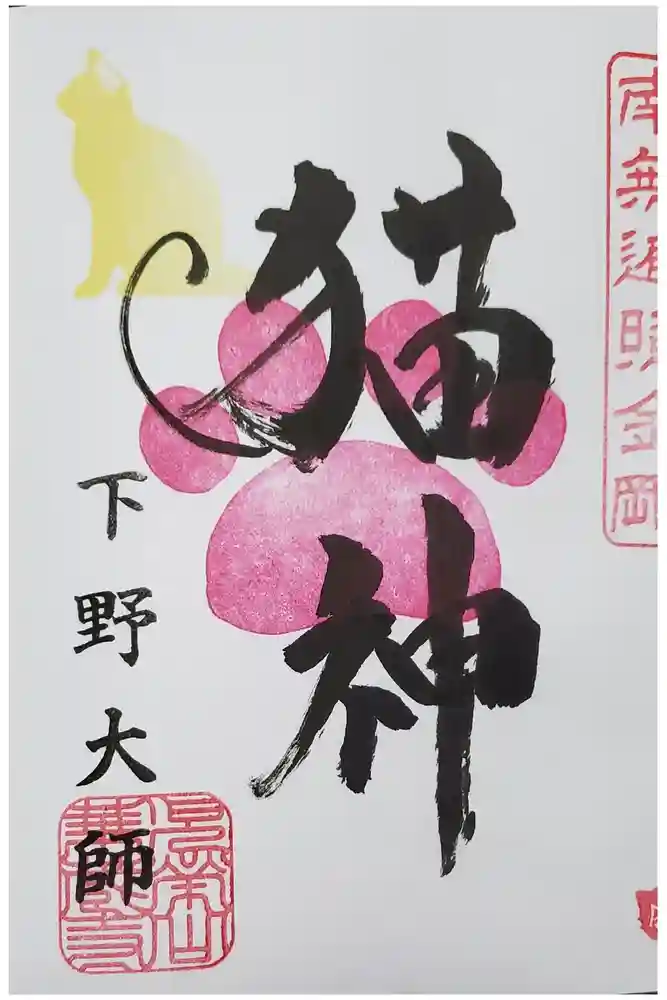 南無遍照金剛
猫神
下野大師
華蔵寺